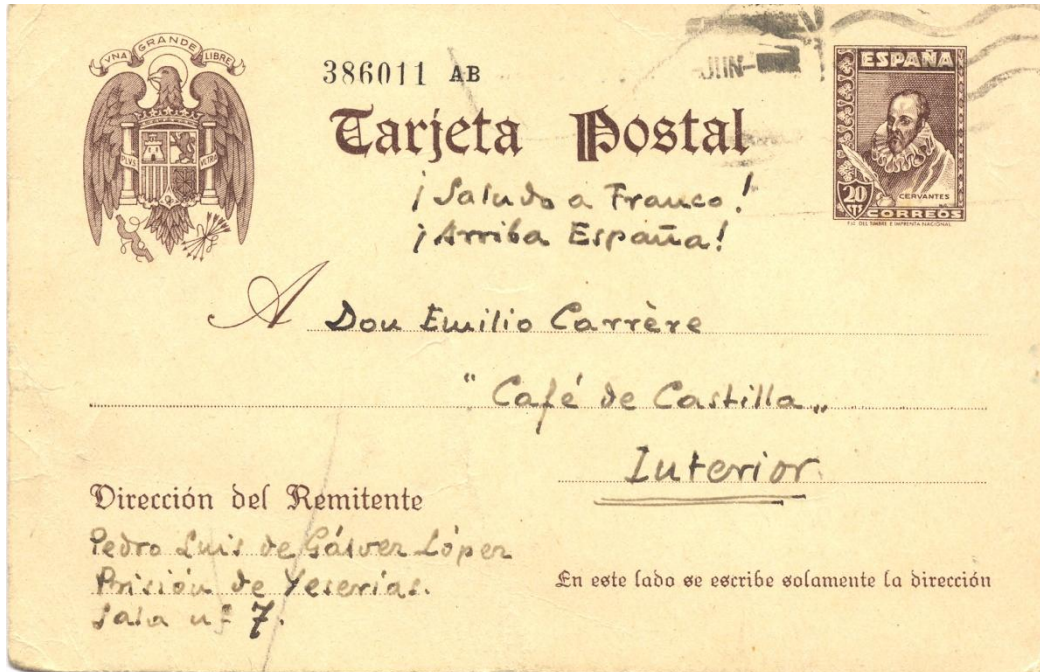 VNA GRANDE LIBRE
PLVS VLTRA
386011 AB
JUN
ESPAÑA
Tarjeta Postal
¡Saludo a Franco!
¡Arriba España!
20
CERVANTES
CORREOS
A Don Emilio Carrère
"Café de Castilla"
Interior
Dirección del Remitente
Pedro Luis de Gálvez López
Prisión de Yeserías.
Sala nº 7.
En este lado se escribe solamente la dirección